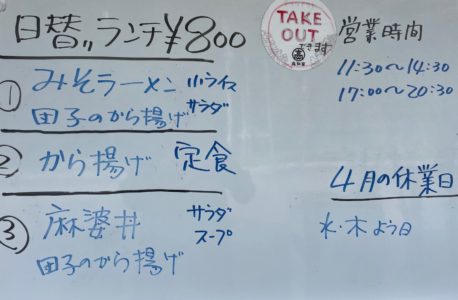 日替〃ランチ¥800
① みそラーメン 小ライス
田子のから揚げ サラダ
② から揚げ 定食
③ 麻婆丼 サラダ
スープ
田子のから揚げ
TAKE
OUT
できます
営業時間
11:30〜14:30
17:00〜20:30
4月の休業日
水・木よう日